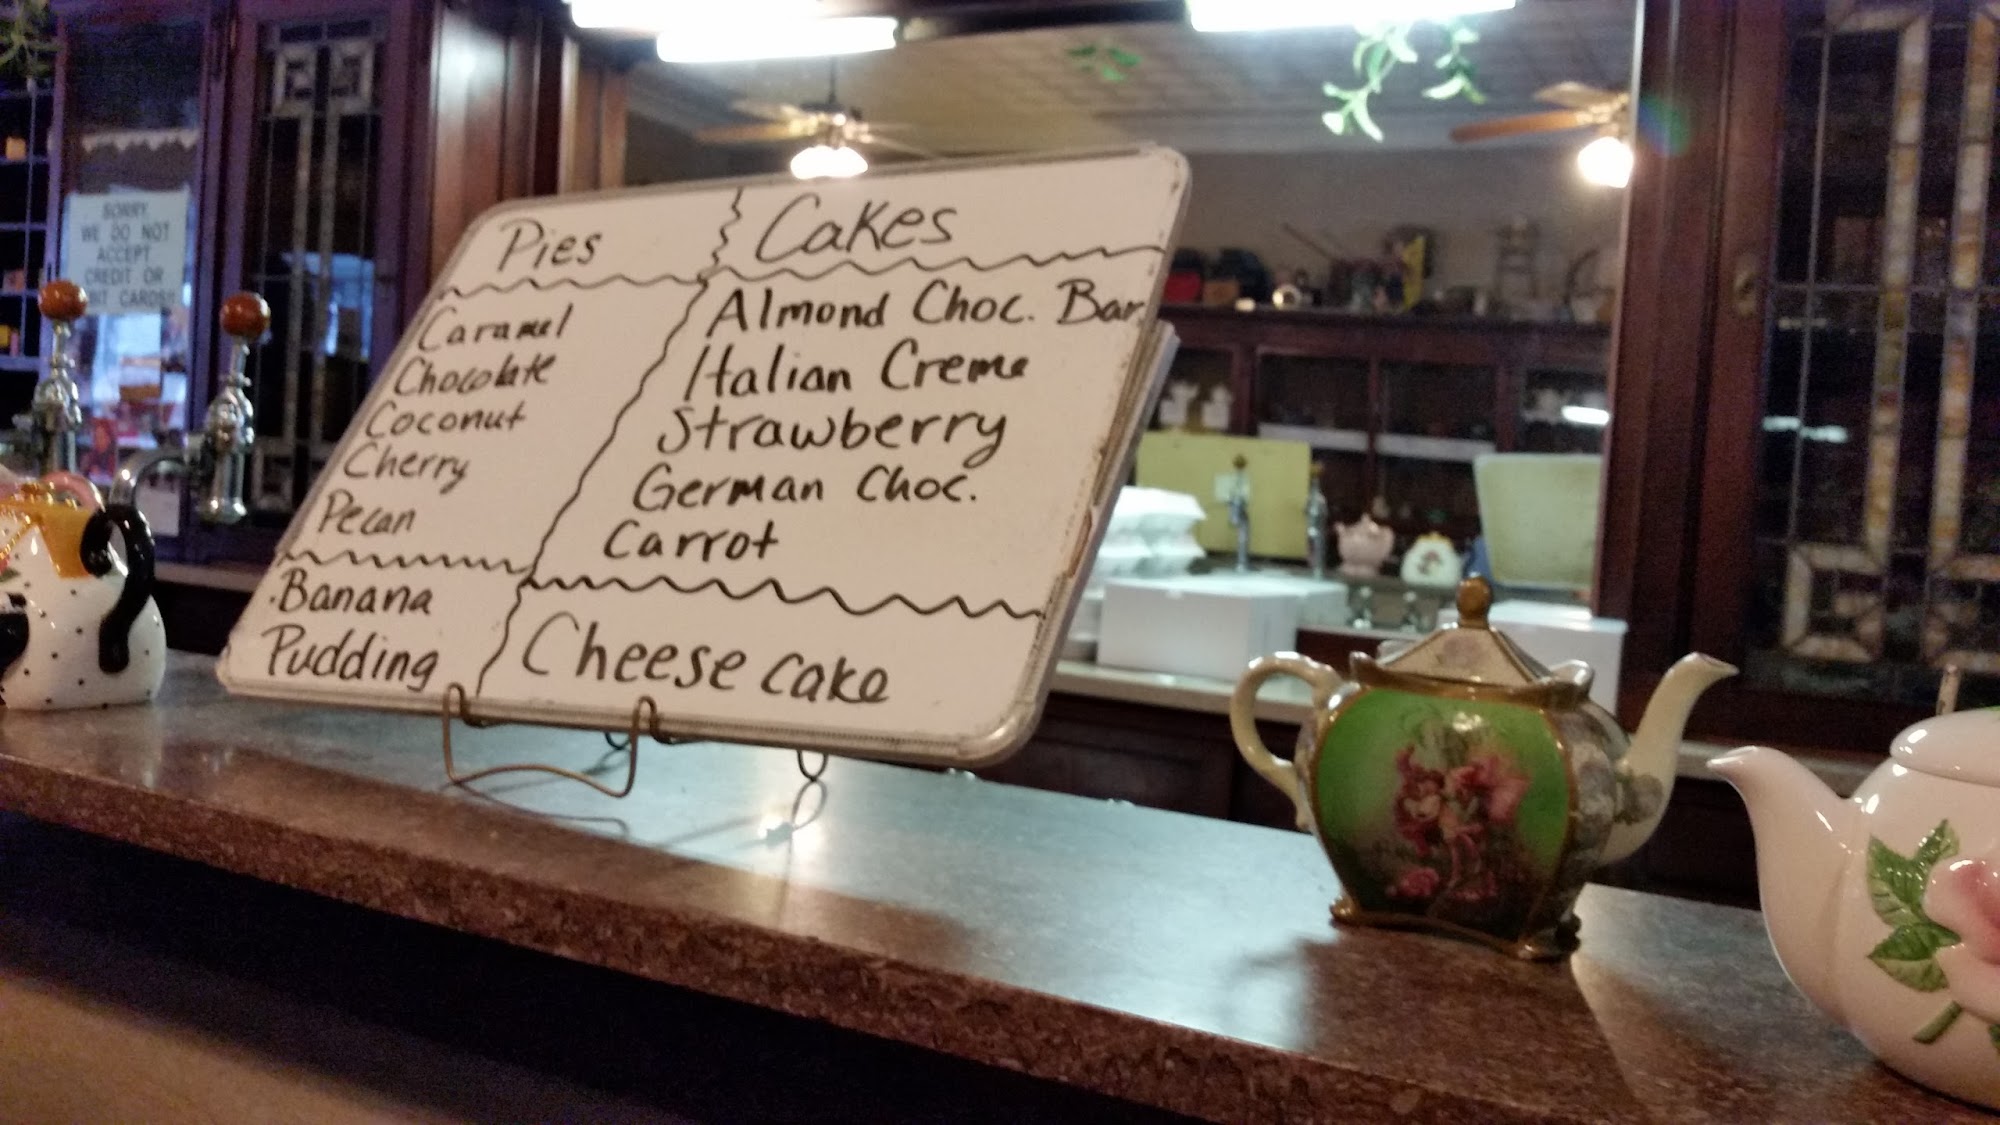 SORRY
WE DO NOT
ACCEPT
CREDIT OR
CARDS!!
Pies
Caramel
Chocolate
Coconut
Cherry
Pecan
Banana
Pudding
Cakes
Almond Choc. Bar
Italian Creme
Strawberry
German Choc.
Carrot
Cheese cake